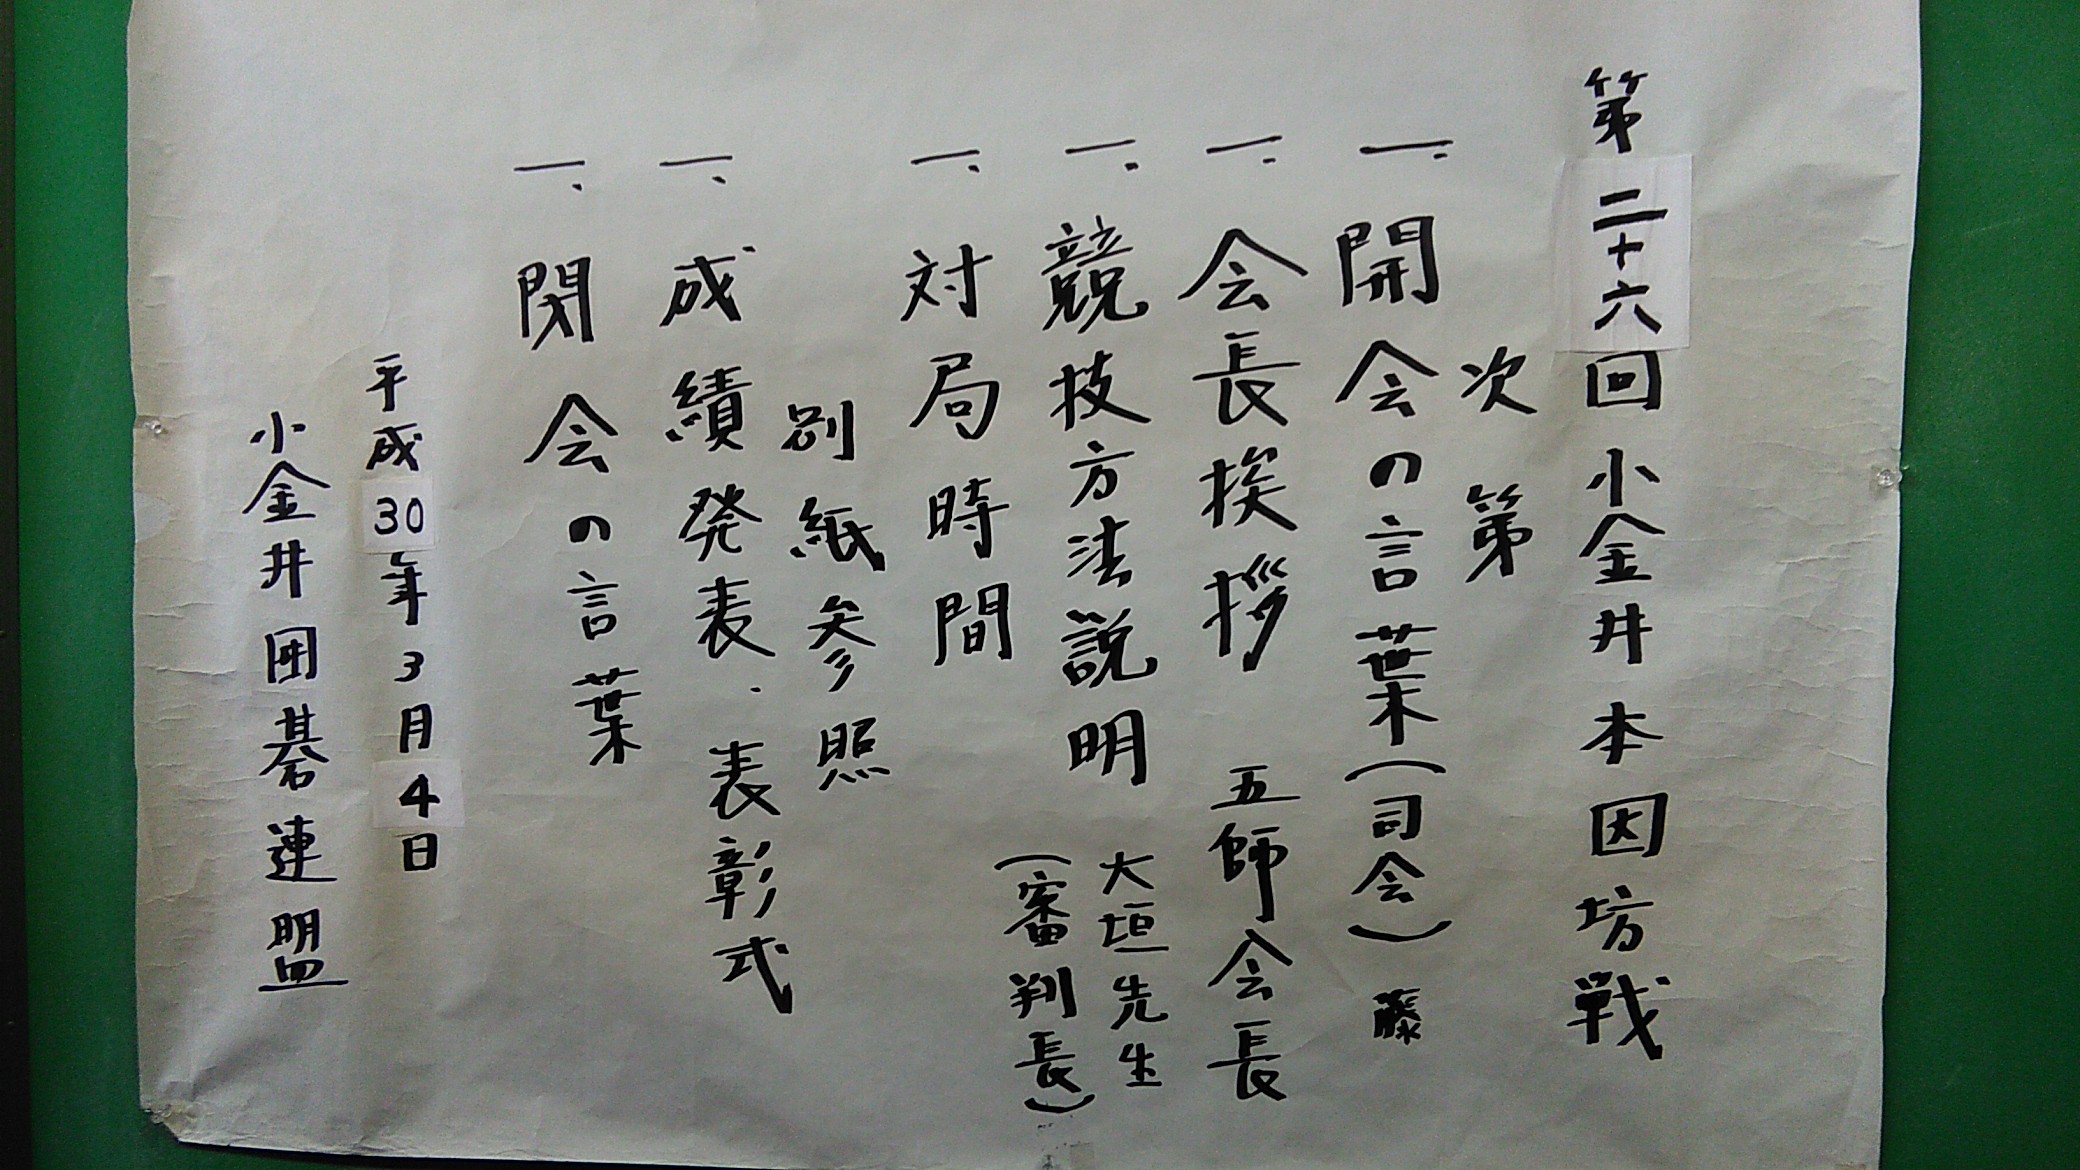 第二十六回小金井本因坊戦
次第
一、開会の言葉(司会)藤
一、会長挨拶 五師会長
一、競技方法説明 大垣先生
(審判長)
一、対局時間
別紙参照
一、成績発表・表彰式
一、閉会の言葉
平成30年3月4日
小金井囲碁連盟